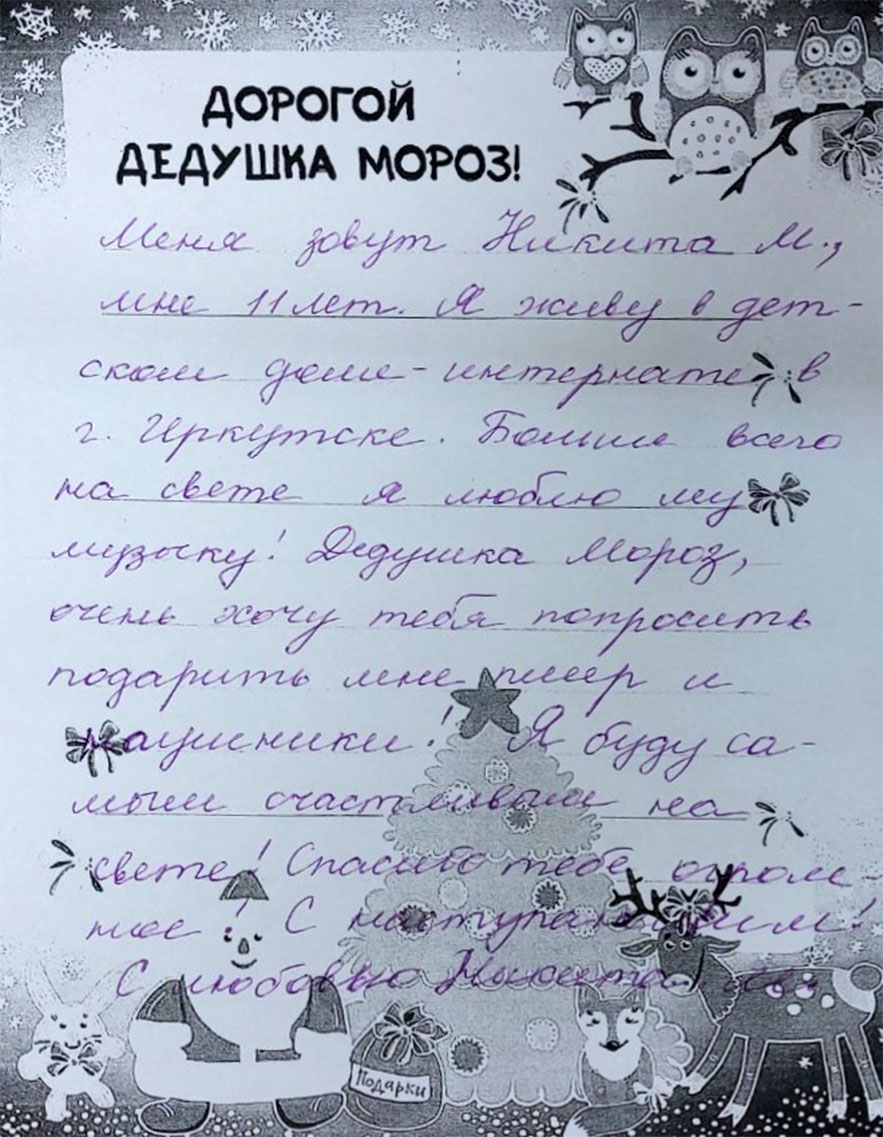 ДОРОГОЙ
ДЕДУШКА МОРОЗ!
Меня зовут Никита М.,
мне 11 лет. Я живу в дет-
ском доме-интернате в
г. Иркутске. Больше всего
на свете я люблю му
музыку! Дедушка Мороз,
очень хочу тебя попросить
подарить мне плеер и
наушники! Я буду са-
мым счастливым на
свете! Спасибо тебе огром-
ное! С наступающим!
С любовью Никита М.
Подарки